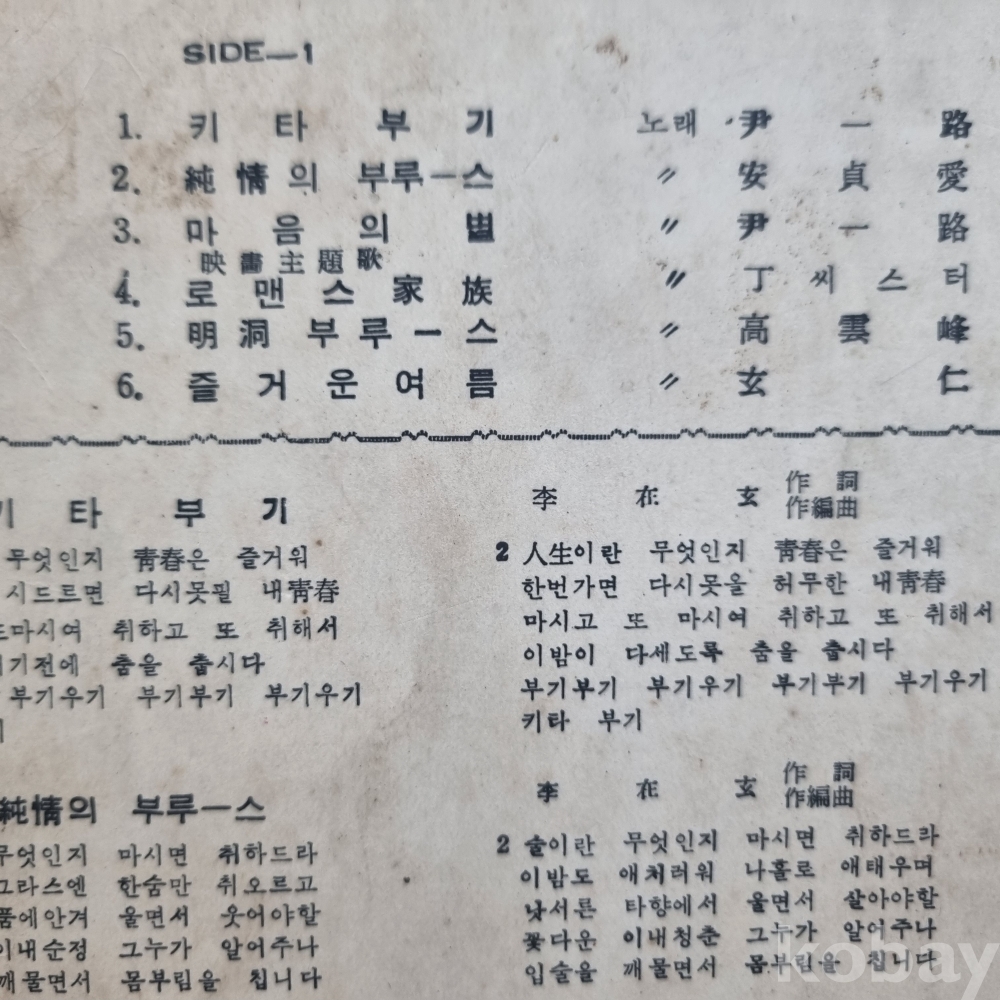 SIDE—1
1. 키타부기 노래 尹一路
2. 純情의 부루ー스 〃 安貞愛
3. 마음의 별 〃 尹一路
映畵主題歌
4. 로맨스家族 〃 丁씨스터
5. 明洞부루ー스 〃 高雲峰
6. 즐거운여름 〃 玄仁
타 부 기
李在玄 作詞
作編曲
무엇인지 靑春은 즐거워
시드르면 다시못필 내靑春
마시여 취하고 또 취해서
기전에 춤을 춥시다
부기우기 부기부기 부기우기
2 人生이란 무엇인지 靑春은 즐거워
한번가면 다시못올 허무한 내靑春
마시고 또 마시여 취하고 또 취해서
이밤이 다세도록 춤을 춥시다
부기부기 부기우기 부기부기 부기우기
키타 부기
純情의 부루ー스
李在玄 作詞
作編曲
무엇인지 마시면 취하드라
그라스엔 한숨만 취오르고
품에안겨 울면서 웃어야할
이내순정 그누가 알어주나
깨물면서 몸부림을 칩니다
2 술이란 무엇인지 마시면 취하드라
이밤도 애처러워 나홀로 애태우며
낯서른 타향에서 울면서 살아야할
꽃다운 이내청춘 그누가 알어주나
입술을 깨물면서 몸부림을 칩니다
kobay